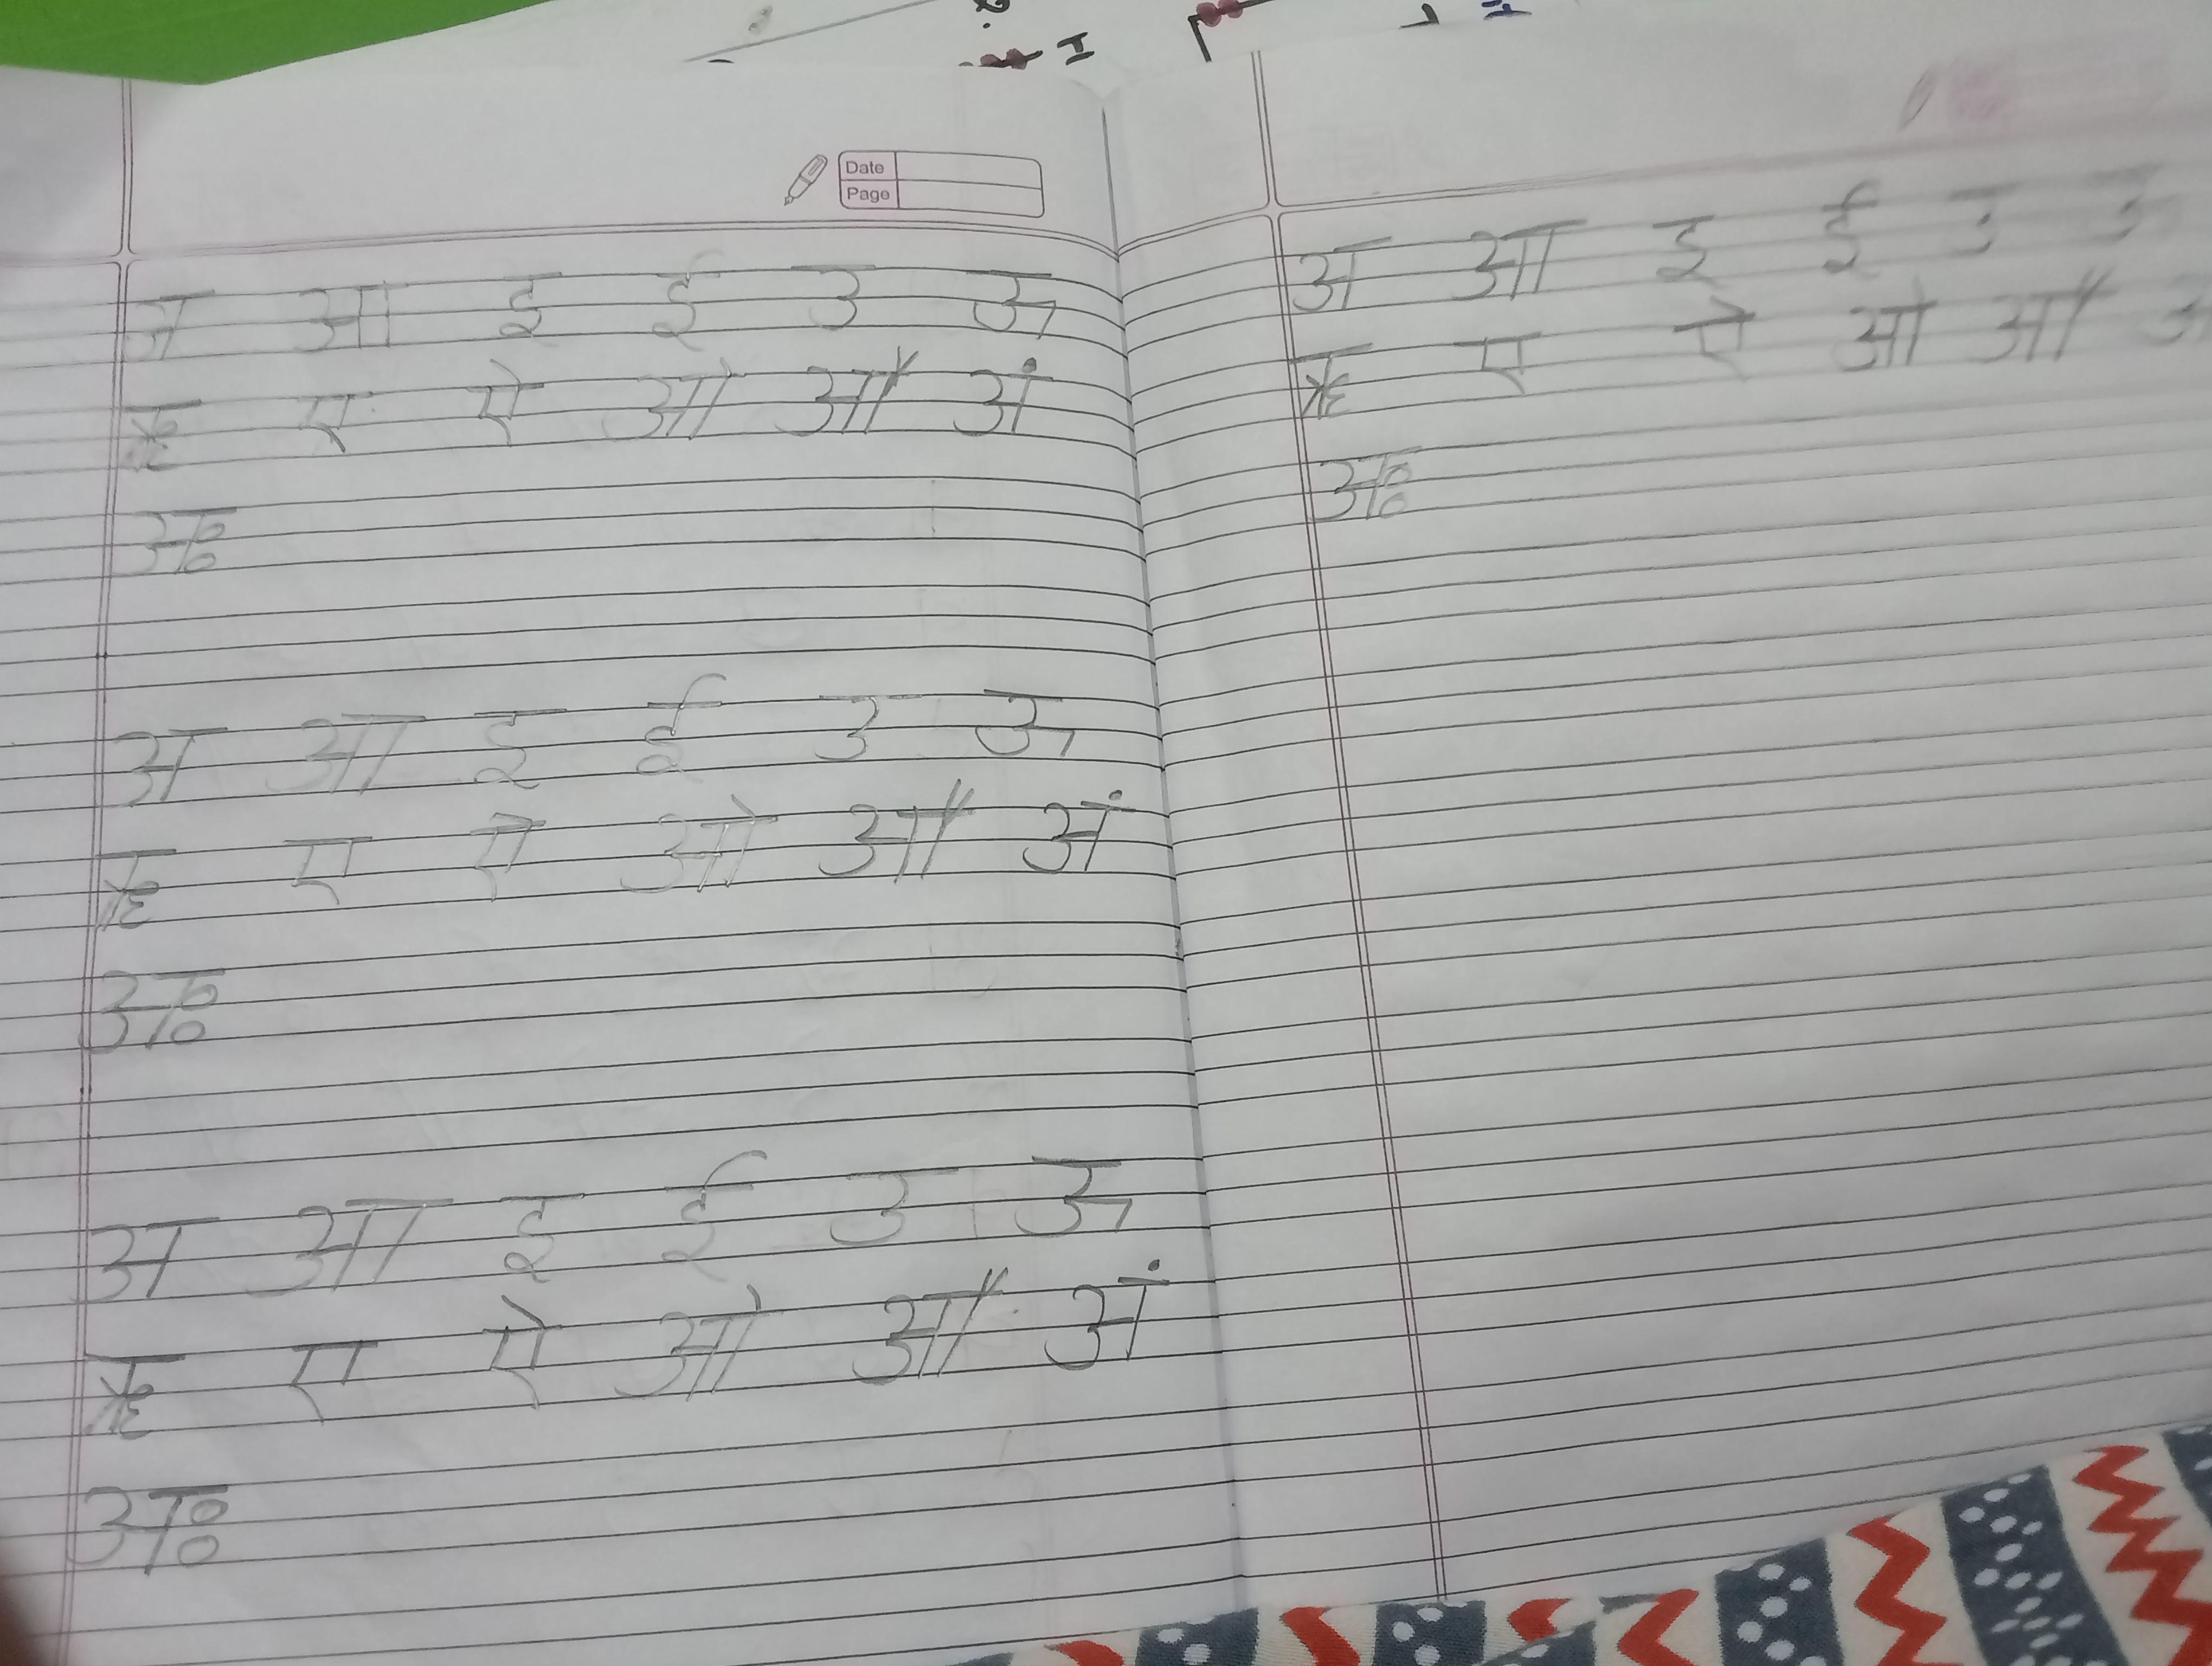 Date
Page
अ आ इ ई उ ऊ
ऋ ए ऐ ओ औ अं
अः
अ आ इ ई उ ऊ
ऋ ए ऐ ओ औ अं
अः
अ आ इ ई उ ऊ
ऋ ए ऐ ओ औ अं
अः
अ आ इ ई उ
ऋ ए ऐ ओ औ
अः